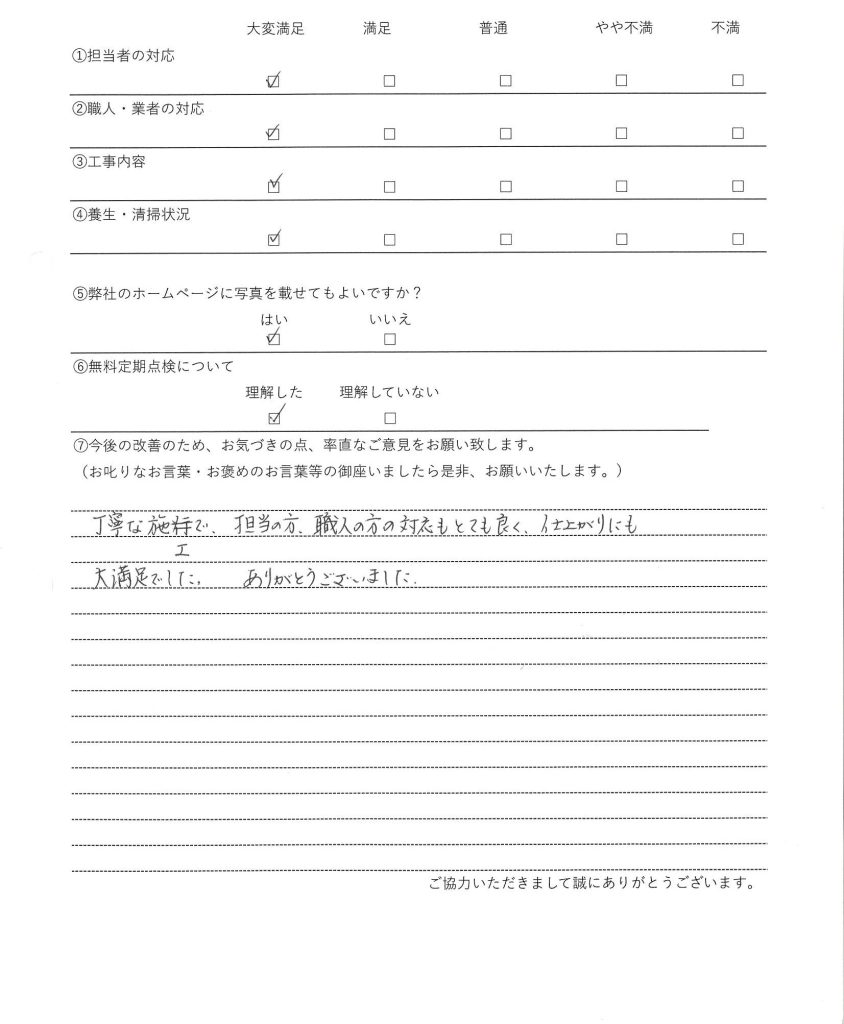 大変満足 満足 普通 やや不満 不満
①担当者の対応
②職人・業者の対応
③工事内容
④養生・清掃状況
⑤弊社のホームページに写真を載せてもよいですか？
はい いいえ
⑥無料定期点検について
理解した 理解していない
⑦今後の改善のため、お気づきの点、率直なご意見をお願い致します。
（お叱りなお言葉・お褒めのお言葉等の御座いましたら是非、お願いいたします。）
丁寧な施行で、担当の方、職人の方の対応もとても良く、仕上がりにも
工
大満足でした。 ありがとうございました。
ご協力いただきまして誠にありがとうございます。